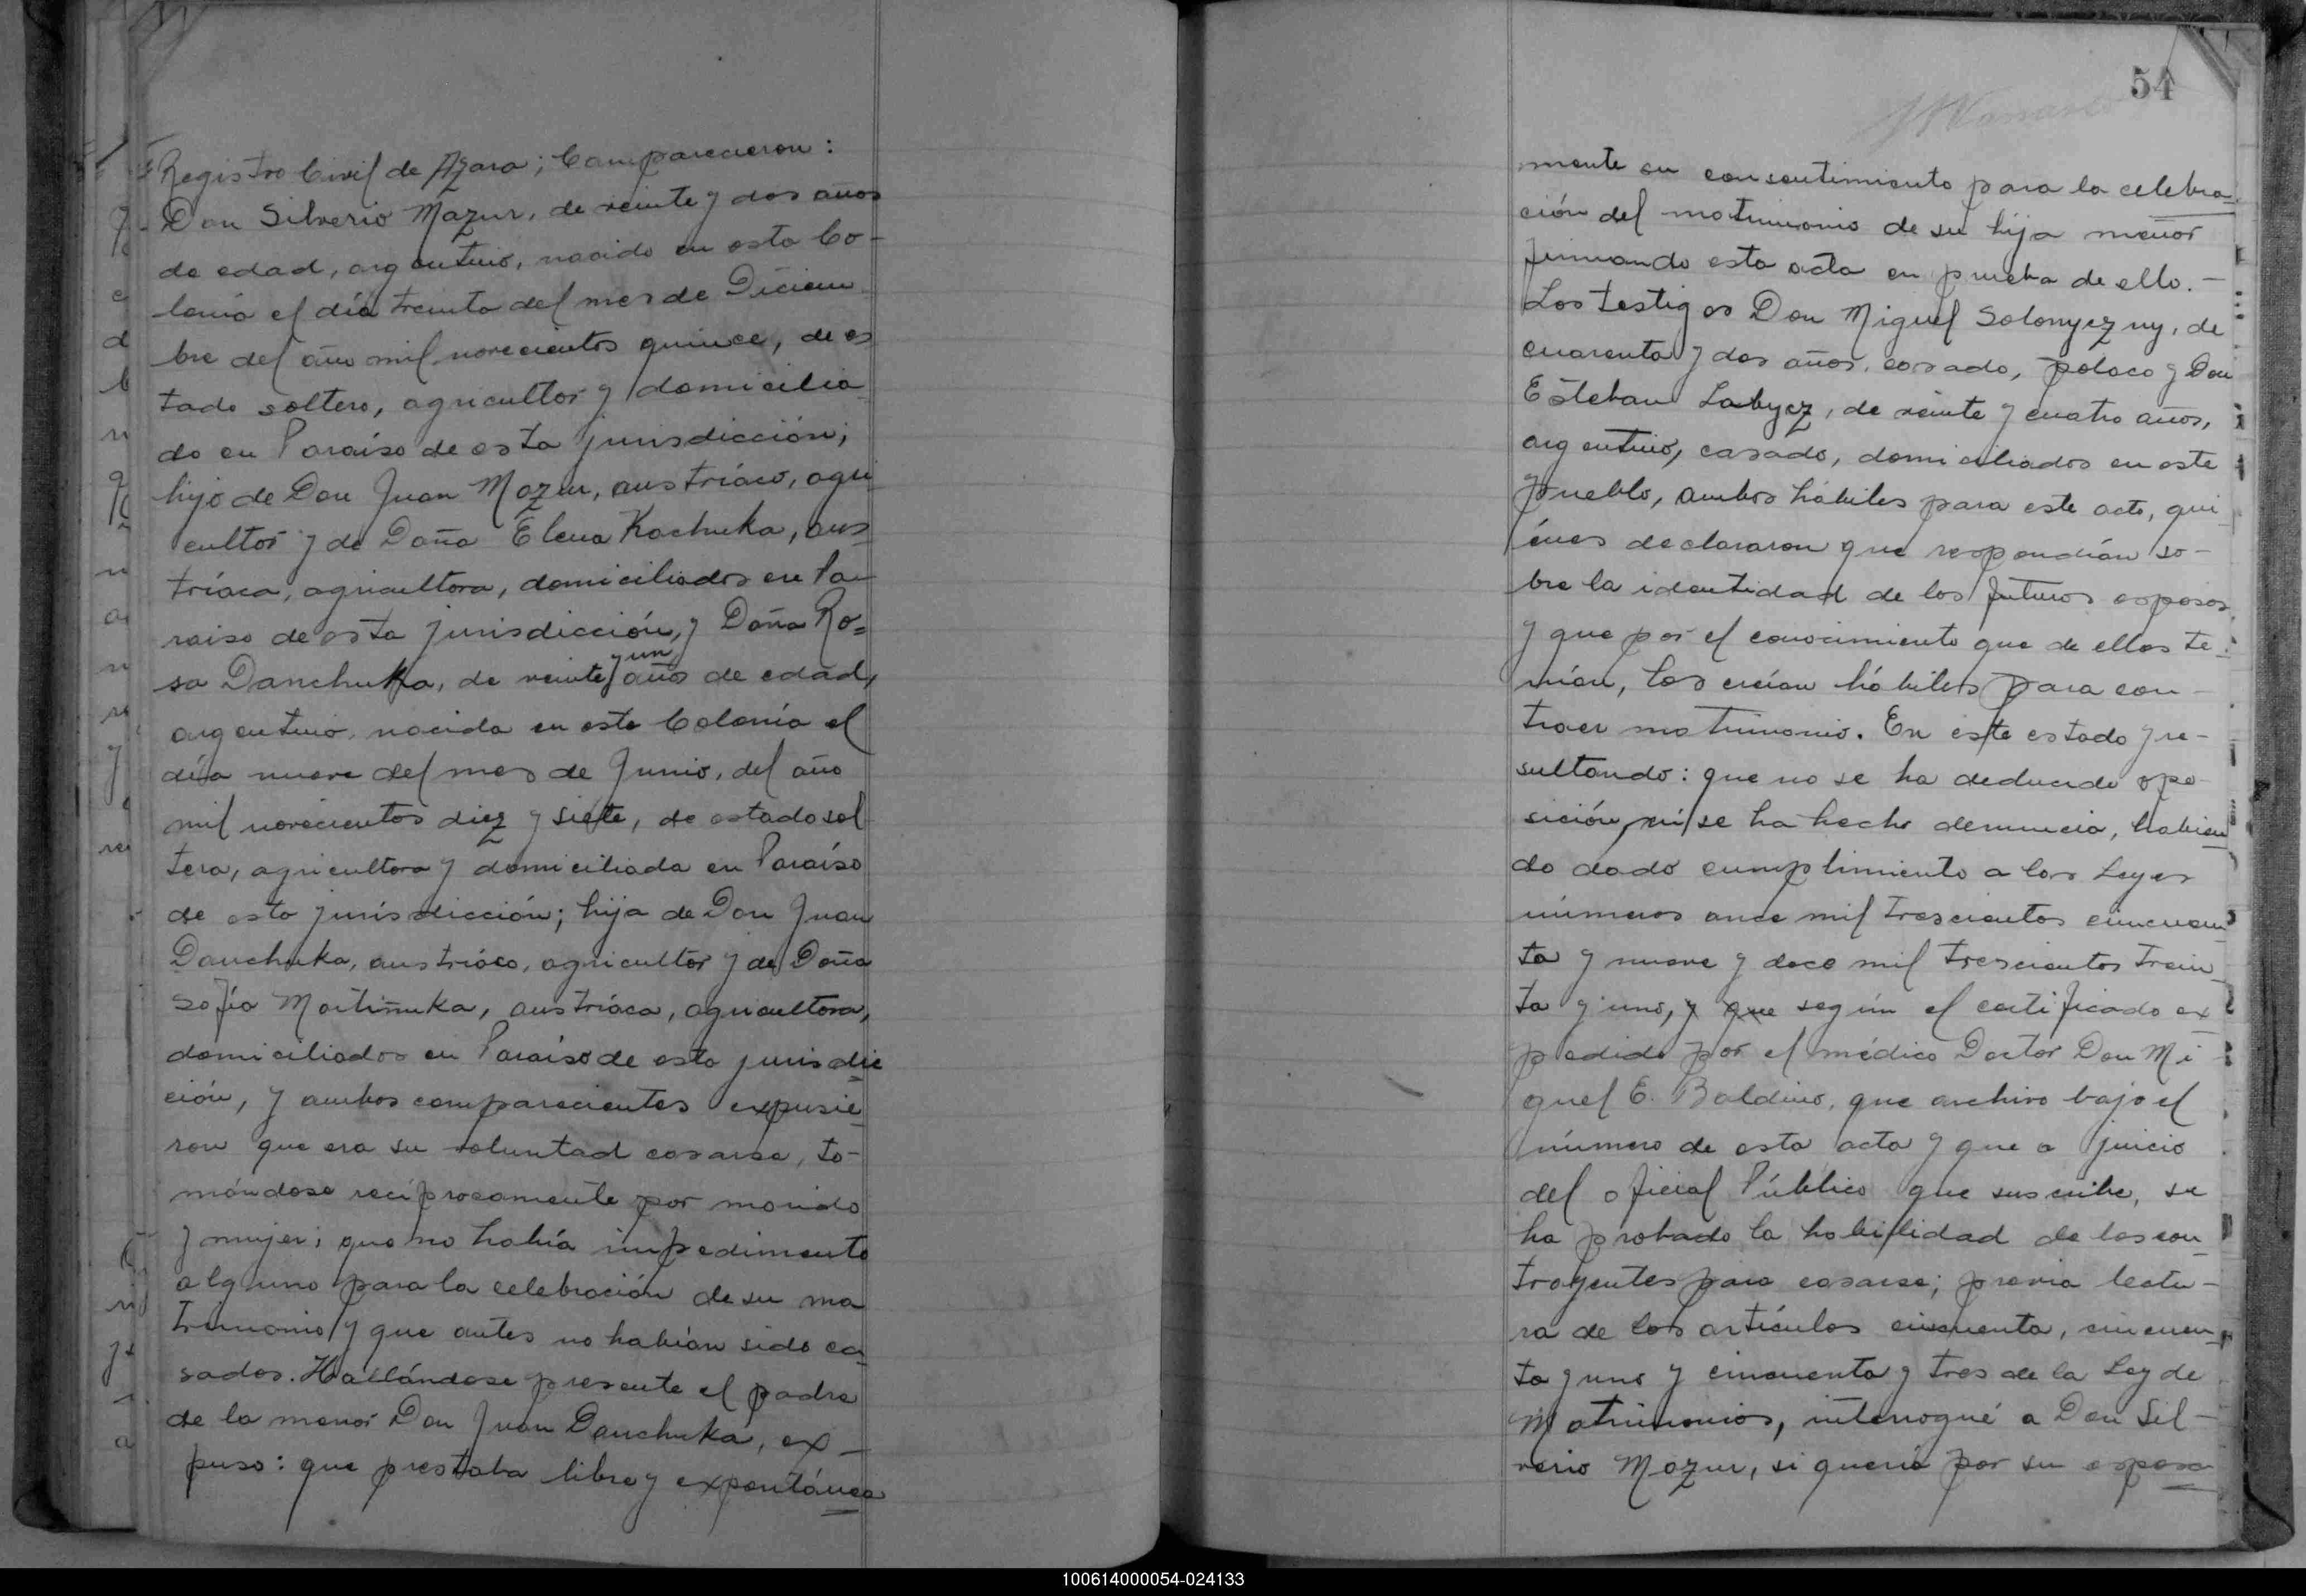 Registro Civil de Azara; Comparecieron:
Don Silverio Mazur, de veinte y dos años
de edad, argentino, nacido en esta Co-
lonia el día treinta del mes de Diciem
bre del año mil novecientos quince, de es
tado soltero, agricultor y domicilia
do en Paraíso de esta jurisdicción;
hijo de Don Juan Mazur, austríaco, agri
cultor y de Doña Elena Kachuka, aus
tríaca, agricultora, domiciliados en Pa
raiso de esta jurisdicción, y Doña Ro=
sa Danchuka, de veinte y un años de edad,
argentino, nacida en esta Colonia el
día nueve del mes de Junio, del año
mil novecientos diez y siete, de estado sol
tera, agricultora y domiciliada en Paraíso
de esta jurisdicción; hija de Don Juan
Danchuka, austríaco, agricultor y de Doña
Sofía Mortiñuka, austríaca, agricultora,
domiciliados en Paraíso de esta jurisdic
ción, y ambos comparecientes expusie
ron que era su voluntad casarse, to-
mándose recíprocamente por marido
y mujer; que no había impedimento
alguno para la celebración de su ma
trimonio y que antes no habían sido ca
sados. Hallándose presente el padre
de la menor Don Juan Danchuka, ex-
puso: que prestaba libre y expontánea
54
mente su consentimiento para la celebra
ción del matrimonio de su hija menor
firmando esta acta en prueba de ello.-
Los testigos Don Miguel Solonyezny, de
cuarenta y dos años, casado, polaco y Don
Esteban Labyez, de veinte y cuatro años,
argentino, casado, domiciliados en este
pueblo, ambos hábiles para este acto, qui
énes declararon que respondían so-
bre la identidad de los futuros esposos,
y que por el conocimiento que de ellos te-
nían, los creían hábiles para con-
traer matrimonio. En este estado y re-
sultando: que no se ha deducido opo-
sición, ni se ha hecho denuncia, habien
do dado cumplimiento a las Leyes
números once mil trescientos cincuen
ta y nueve y doce mil trescientos trein
ta y uno, y que según el certificado ex
pedido por el médico Doctor Don Mi-
guel E. Baldino, que archivo bajo el
número de esta acta y que a juicio
del oficial Público que suscribe, se
ha probado la habilidad de los con
trayentes para casarse; previa lectu-
ra de los artículos cincuenta, cincuen
ta y uno y cincuenta y tres de la Ley de
Matrimonios, interrogué a Don Sil-
verio Mazur, si quería por su esposa
100614000054-024133